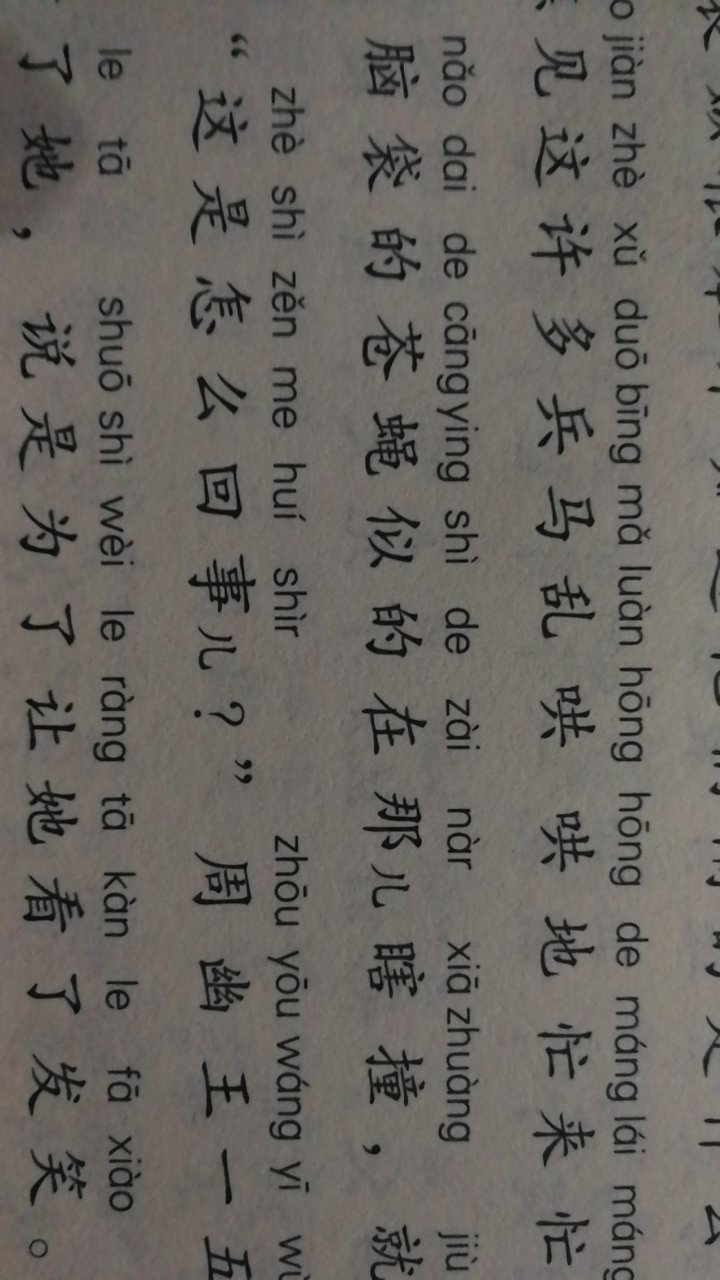 jiàn zhè xǔ duō bīng mǎ luàn hōng hōng de máng lái máng
见这许多兵马乱哄哄地忙来忙
nǎo dai de cāng ying shì de zài nàr xiā zhuàng jiù
脑袋的苍蝇似的在那儿瞎撞，就
zhè shì zěn me huí shìr zhōu yōu wáng yī wǔ
“这是怎么回事儿？”周幽王一五
le tā shuō shì wèi le ràng tā kàn le fā xiào
了她，说是为了让她看了发笑。